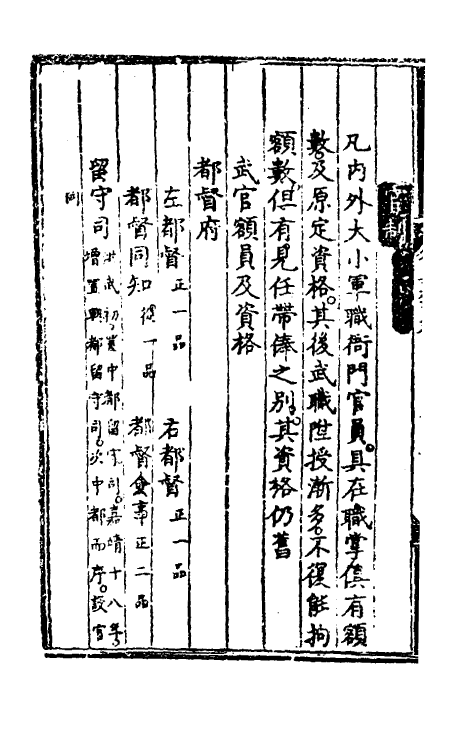 凡內外大小軍職衙門官員。具在職掌。俱有額
數。及原定資格。其後武職陞授漸多。不復能拘
額數。但有見任帶俸之別。其資格仍舊
武官額員及資格
都督府
左都督正一品 右都督正一品
都督同知從一品 都督僉事正二品
留守司洪武初。置中都留守司。嘉靖十八年。
增置興都留守司。次中都而序。設官
同